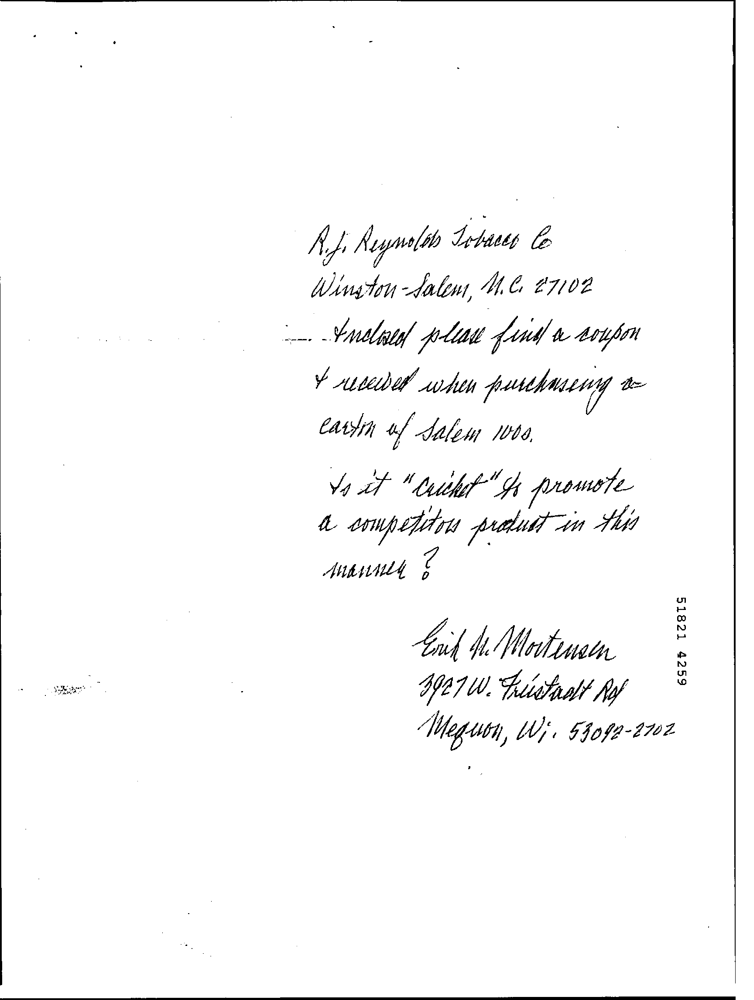 R.J. Reynolds Tobacco Co
Winston-Salem, N.C. 27102
Inclosed please find a coupon
I received when purchaseing a
carton of Salem 100s.
Is it "Cricket" to promote
a competitors product in this
manner?
Erich N. Mortensen
3927 W. Freistadt Rd
Mequon, Wi. 53092-2702
51821 4259